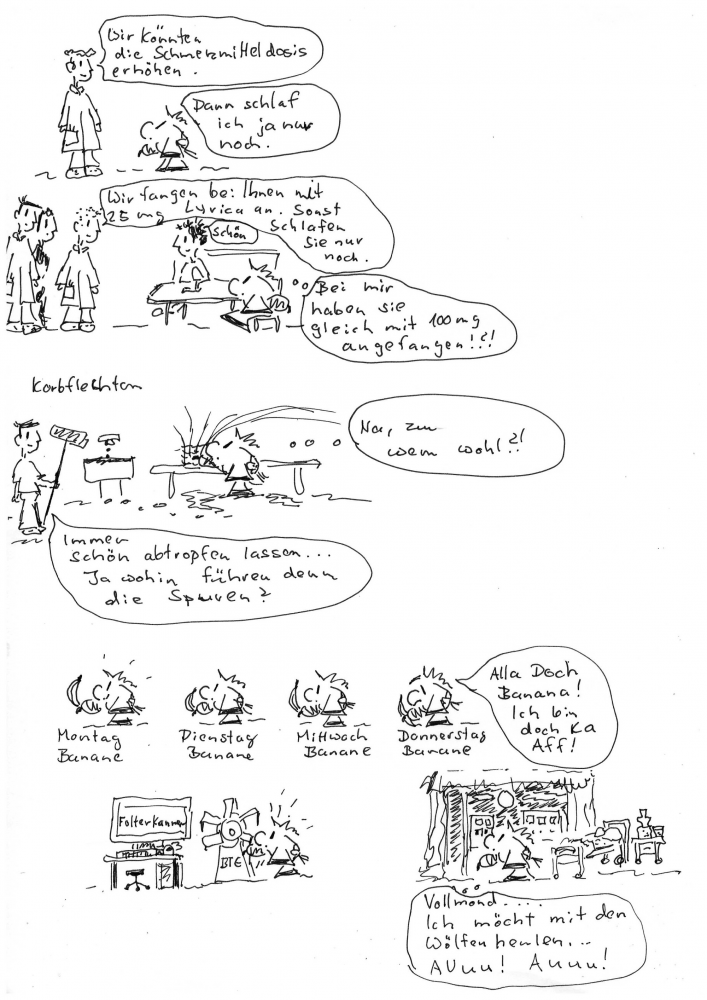 Wir könnten
die Schmerzmitteldosis
erhöhen.
Dann schlaf
ich ja nur
noch.
Wir fangen bei Ihnen mit
25 mg Lyrica an. Sonst
schlafen
Sie nur
noch.
Schön
Bei mir
haben sie
gleich mit 100 mg
angefangen!?!
Korbflechten
Na, zu
wem wohl?!
Immer
schön abtropfen lassen...
Ja wohin führen denn
die Spuren?
Montag
Banane
Dienstag
Banane
Mittwoch
Banane
Donnerstag
Banane
Alla Doch
Banana!
Ich bin
doch Ka
Aff!
Folterkammer
BTE
Vollmond....
Ich möcht mit den
Wölfen heulen...
AUuu! Auuu!